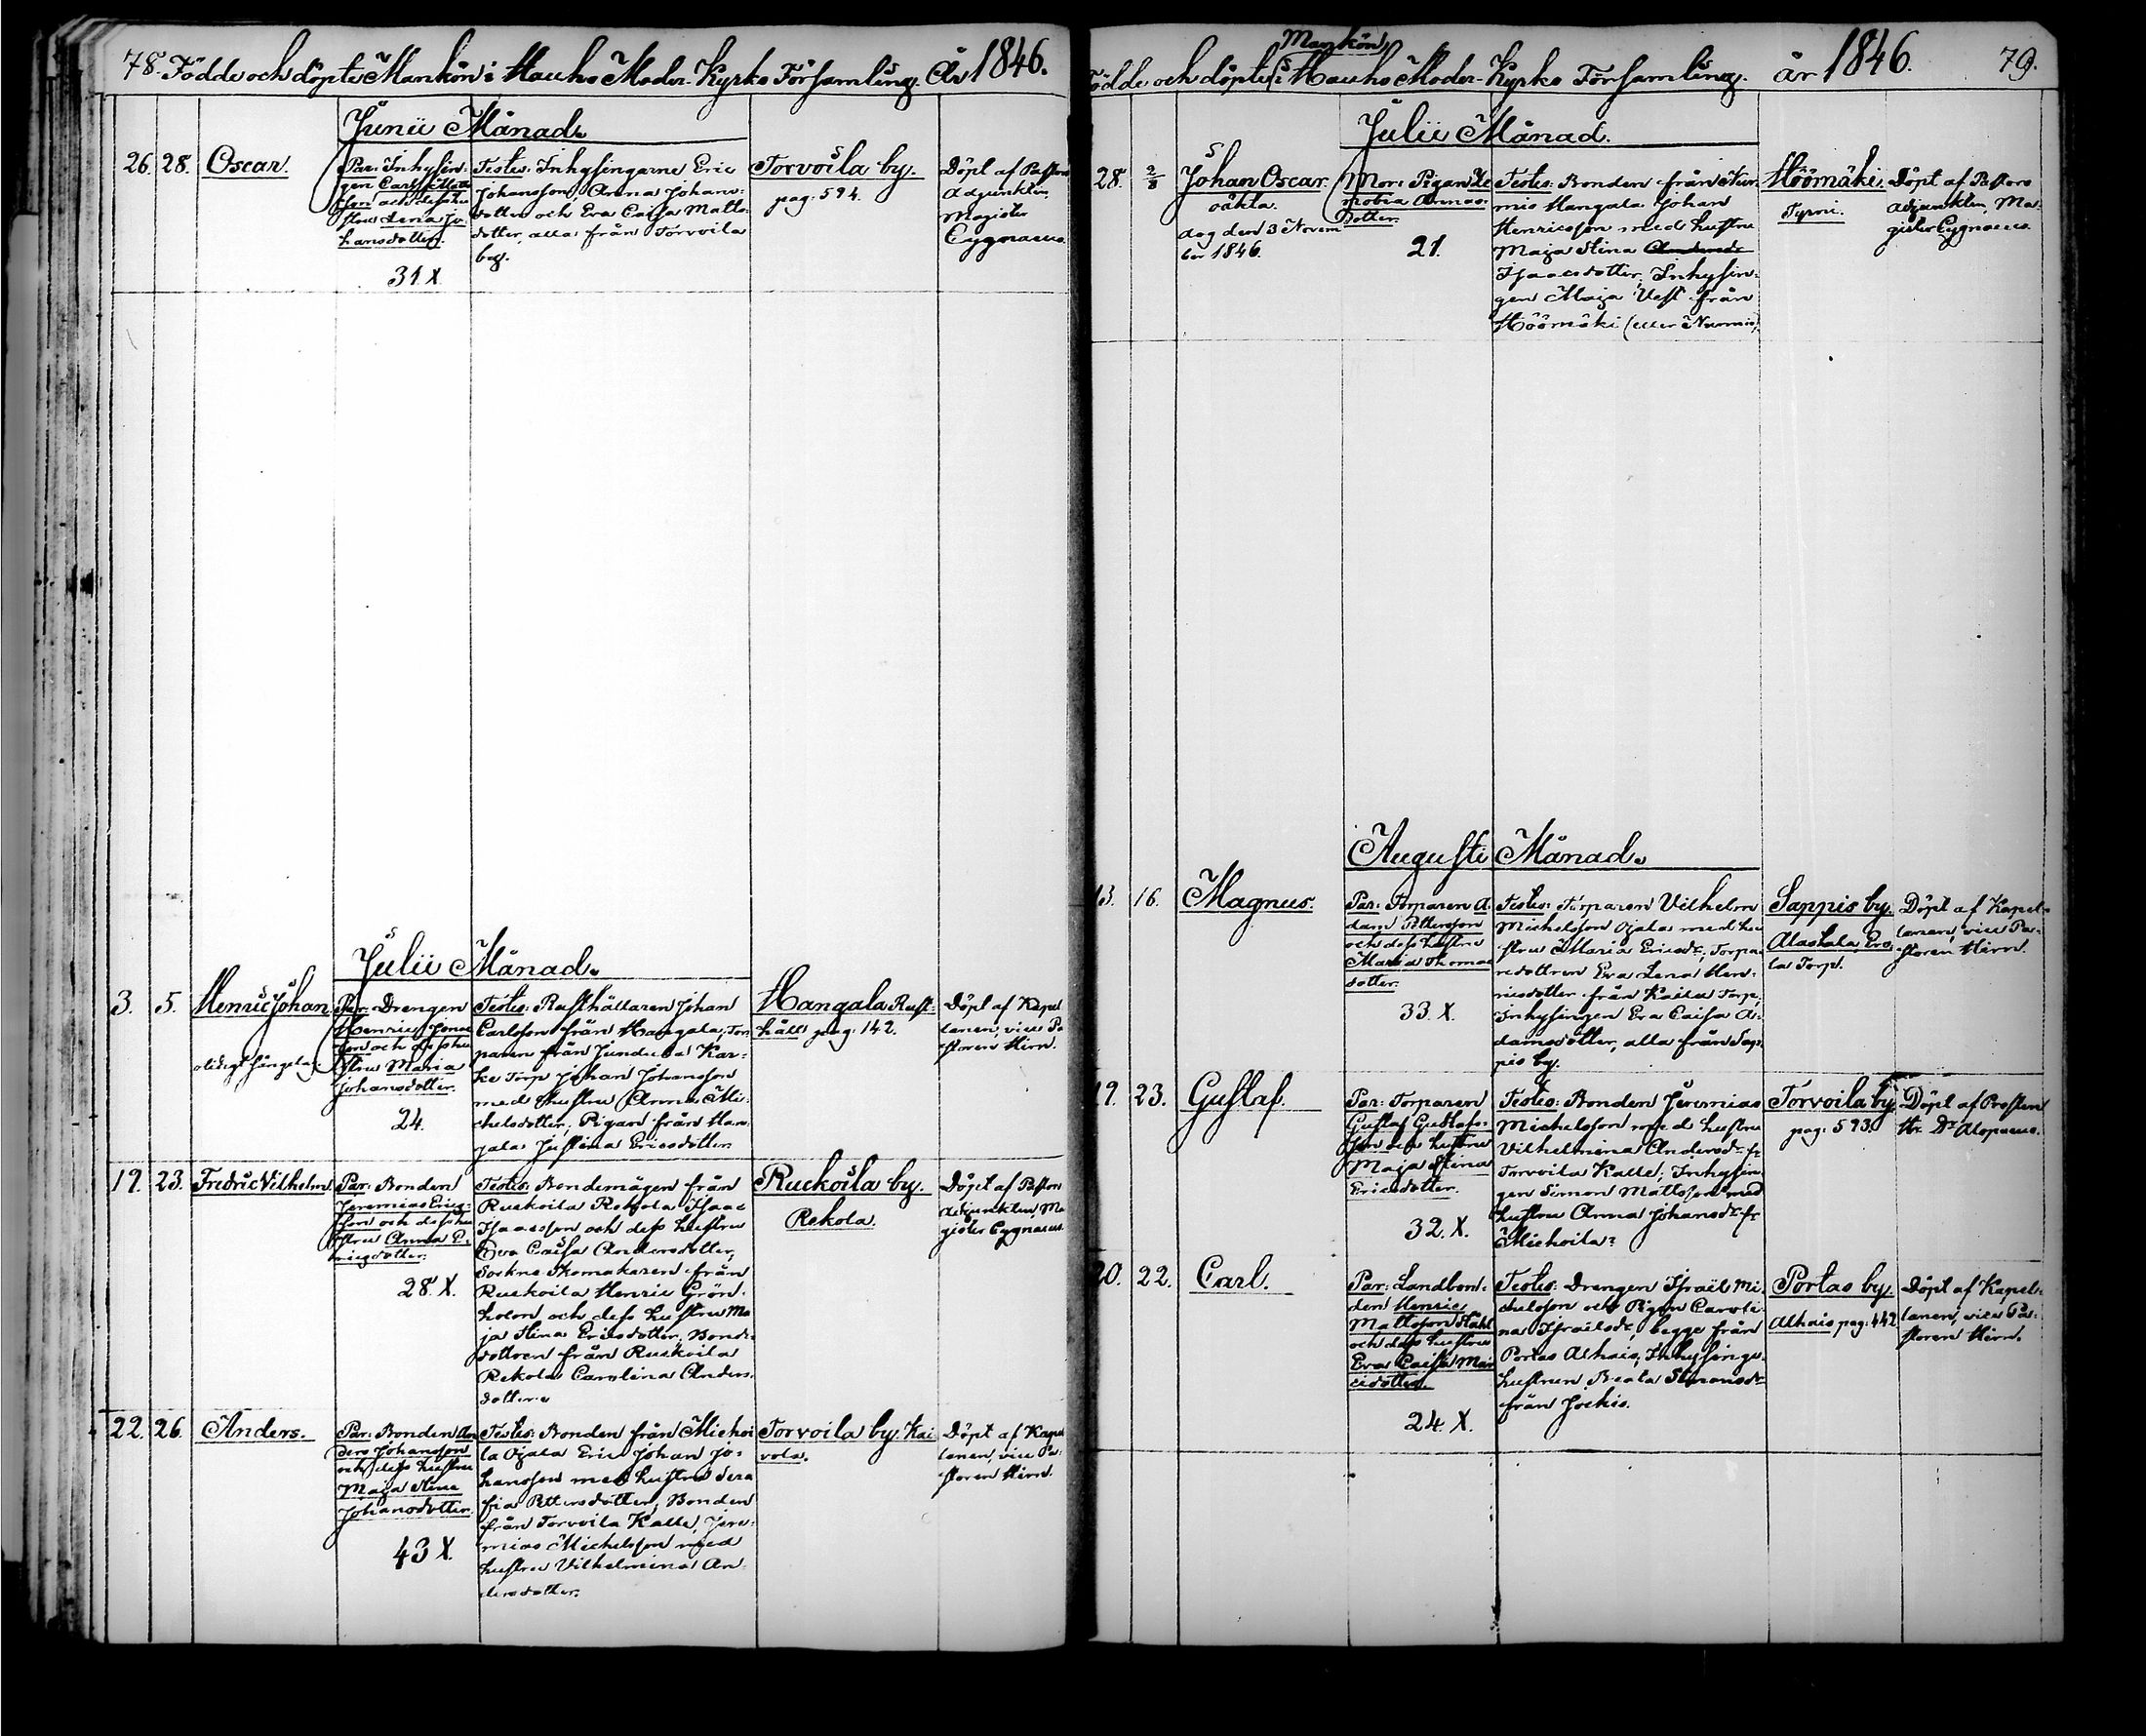 78. Födde och döpte Mankön i Hauho Moder-Kyrko Församling. År 1846.
Junii Månad.
26. 28. Oscar.
Par: Inhysin-
gen Carl Matts
son och dess hu
stru Lena Jo-
hansdotter.
31 X
Testes: Inhysingarne Eric
Johansson, Anna Johans-
dotter och Eva Caisa Matts-
dotter, alla från Torvoila
by.
Torvoila by.
pag. 594.
Döpt af Pastors
Adjunkten,
Magister
Cygnaeus.
Julii Månad.
3. 5. Henric Johan
Par: Drengen
Henric Jonas
son och dess hu
stru Maria
Johansdotter.
24.
Testes: Rusthållaren Johan
Carlsson från Hangala, Tor-
paren från Kar-
ke Torp Johan Johansson
med hustru Anna Mi-
chelsdotter, Pigan från Han
gala Justina Ericsdotter.
Hangala Rust-
håll pag: 142.
Döpt af Kapel
lanen, vice Pa-
storen Hirn.
19. 23. Fredric Vilhelm.
Par: Bonden
Jeremias Erics-
son och dess hu
stru Anna E-
ricsdotter.
28 X.
Testes: Bondemågen från
Ruckoila Rekola Isaac
Isaacsson och dess hustru
Eva Caisa Andersdotter,
Sockne Skomakaren från
Ruckoila Henric Grön-
holm och dess hustru Ma
ja Stina Ericsdotter, Bonde
dottren från Ruckoila
Rekola Carolina Anders
dotter.
Ruckoila by.
Rekola.
Döpt af Pastors
Adjunkten, Ma
gister Cygnaeus.
22. 26. Anders.
Par: Bonden An
ders Johansson
och dess hustru
Maja Stina
Johansdotter.
43 X.
Testes: Bonden från Miehoi
la Ojala Eric Johan Jo-
hansson med hustru Sera
fia Pettersdotter, Bonden
från Torvoila Kalle, Jere-
mias Michelsson med
hustru Vilhelmina An-
dersdotter.
Torvoila by. Kai
vola.
Döpt af Kapel
lanen, vice Pa-
storen Hirn.
Mankön,
Födde och döpte i Hauho Moder-Kyrko Församling. år 1846. 79.
Julii Månad.
28. 2/8 Johan Oscar.
oäkta.
dog den 3 Novem
ber 1846.
Mor: Pigan Ze
nobia Annas-
dotter.
21.
Testes: Bonden från Nur-
mis Hangala Johan
Henricsson med hustru
Maja Stina
Isaacsdotter, Inhysin-
gen Maja Vest från
Höömäki (eller Nurmis).
Höömäki.
Tyrni.
Döpt af Pastors
Adjunkten, Ma-
gister Cygnaeus.
Augusti Månad.
13. 16. Magnus.
Par: Torparen A-
dam Pettersson
och dess hustru
Maria Thomae
dotter.
33. X.
Testes: Torparen Vilhelm
Michelsson Ojala med hu
stru Maria Ericsdr, Torpa
redottren Eva Lena Hen-
ricsdotter från Torp,
Inhysingen Eva Caisa A-
damsdotter, alla från Sap-
pis by.
Sappis by.
Alaskala
la Torp.
Döpt af Kapel-
lanen, vice Pa-
storen Hirn.
19. 23. Gustaf.
Par: Torparen
Gustaf Gustafs-
son dess hustru
Maja Stina
Ericsdotter.
32. X.
Testes: Bonden Jeremias
Michelsson med hustru
Vilhelmina Andersdr fr
Torvoila Kalle, Inhysin-
gen Simon Mattsson med
hustru Anna Johansdr fr
Miehoila.
Torvoila by.
pag: 593.
Döpt af Prosten
Hr Dr Alopaeus.
20. 22. Carl.
Par: Landbon-
den Henric
Mattsson Ståhl
och dess hustru
Eva Caisa Mat
dotter.
24. X.
Testes: Drengen Israel Mi
chelsson och Pigan Caroli
na Israelsdr, begge från
Portas Alhais, Inhysings-
hustrun Beata Simonsdr
från Jockis.
Portas by.
Alhais pag: 442
Döpt af Kapel-
lanen, vice Pa-
storen Hirn.